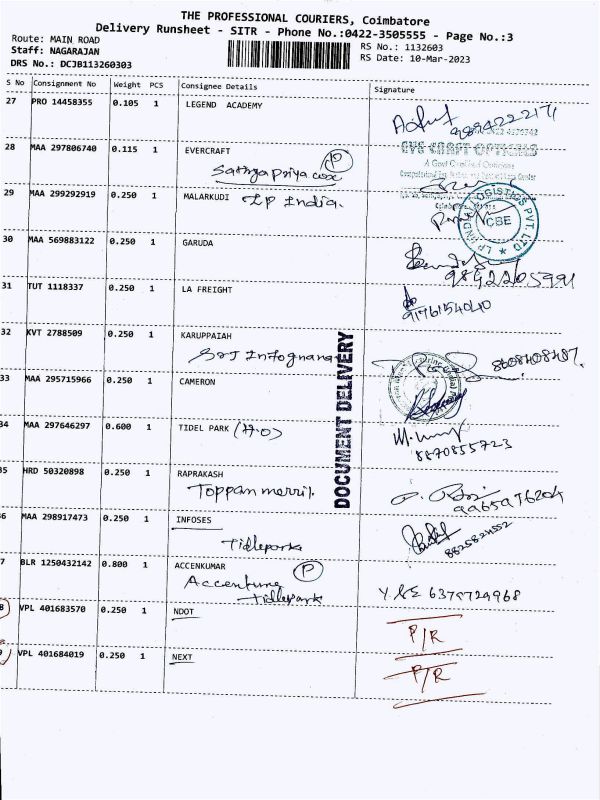 THE PROFESSIONAL COURIERS, Coimbatore
Delivery Runsheet - SITR - Phone No.:0422-3505555 - Page No.:3
Route: MAIN ROAD
Staff: NAGARAJAN
DRS No.: DCJB113260303
RS No.: 1132603
RS Date: 10-Mar-2023
S No Consignment No Weight PCS Consignee Details Signature
27 PRO 14458355 0.105 1 LEGEND ACADEMY
28 MAA 297806740 0.115 1 EVERCRAFT
Sathya Priya
P
29 MAA 299292919 0.250 1 MALARKUDI LP India.
CBE
30 MAA 569883122 0.250 1 GARUDA
9842205991
31 TUT 1118337 0.250 1 LA FREIGHT
9176154040
32 KVT 2788509 0.250 1 KARUPPAIAH
8608408487.
33 MAA 295715966 0.250 1 CAMERON
DOCUMENT DELIVERY
34 MAA 297646297 0.600 1 TIDEL PARK (H.O)
8870855723
35 HRD 50320898 0.250 1 RAPRAKASH
Toppan merril.
9965976204
36 MAA 298917473 0.250 1 INFOSES
Tidlepark
8825824552
7 BLR 1250432142 0.800 1 ACCENKUMAR P
Accenture
Tidlepark
6375729968
8 VPL 401683570 0.250 1 NDOT
P/R
9 VPL 401684019 0.250 1 NEXT
P/R